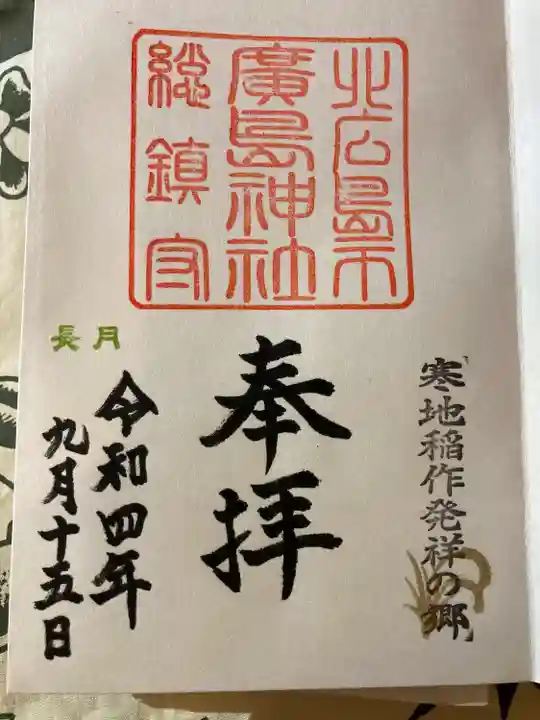 北広島市
廣島神社
総鎮守
「寒地稲作発祥の郷」
奉拝
長月
令和四年
九月十五日